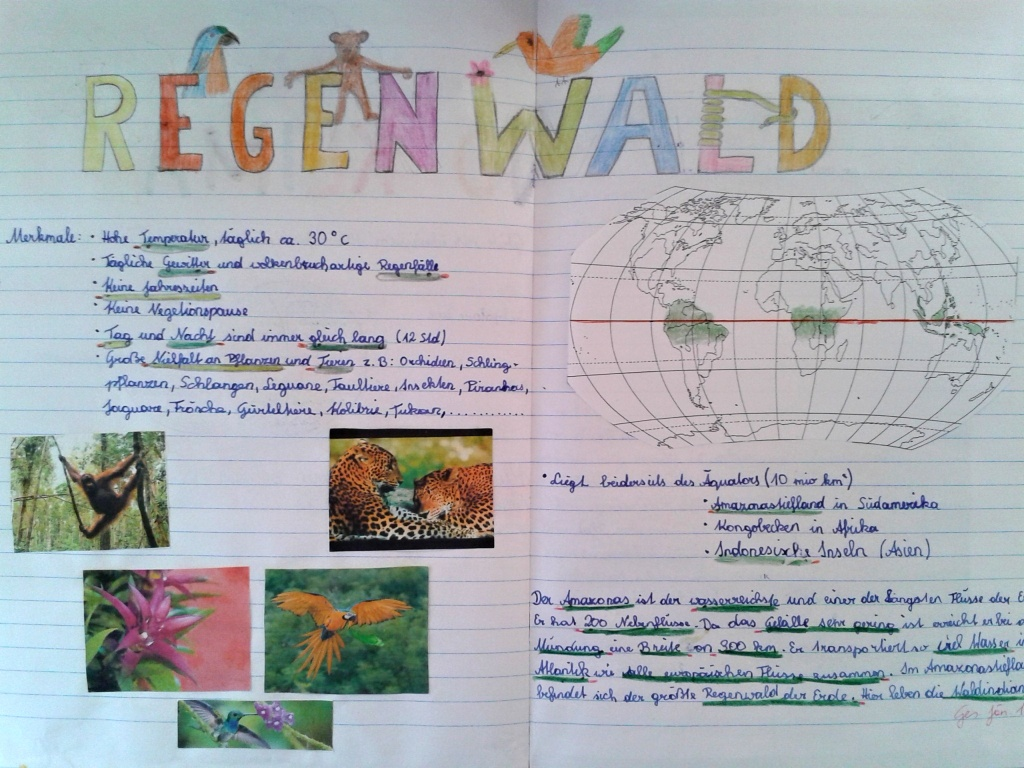 REGENWALD
Merkmale: • Hohe Temperatur, täglich ca. 30°C
• Tägliche Gewitter und wolkenbruchartige Regenfälle
• Keine Jahreszeiten
• Keine Vegetionspause
• Tag und Nacht sind immer gleich lang (12 Std)
• Große Vielfalt an Pflanzen und Tieren z.B: Orchidien, Schling-
pflanzen, Schlangen, Leguane, Faultiere, Insekten, Piranhas,
Jaguare, Frösche, Gürteltiere, Kolibrie, Tukan,............
• Liegt beiderseits des Äquators (10 mio km²)
• Amazonastiefland in Südamerika
• Kongobecken in Afrika
• Indonesische Inseln (Asien)
Der Amazonas ist der wasserreichste und einer der längsten Flüsse der
Er hat 200 Nebenflüsse. Da das Gefälle sehr gering ist erreicht er bei
Mündung eine Breite von 300 km. Er transportiert so viel Wasser
Atlantik wie alle europäischen Flüsse zusammen. Im Amazonastiefla
befindet sich der größte Regenwald der Erde. Hier leben die Waldindian
Ges.